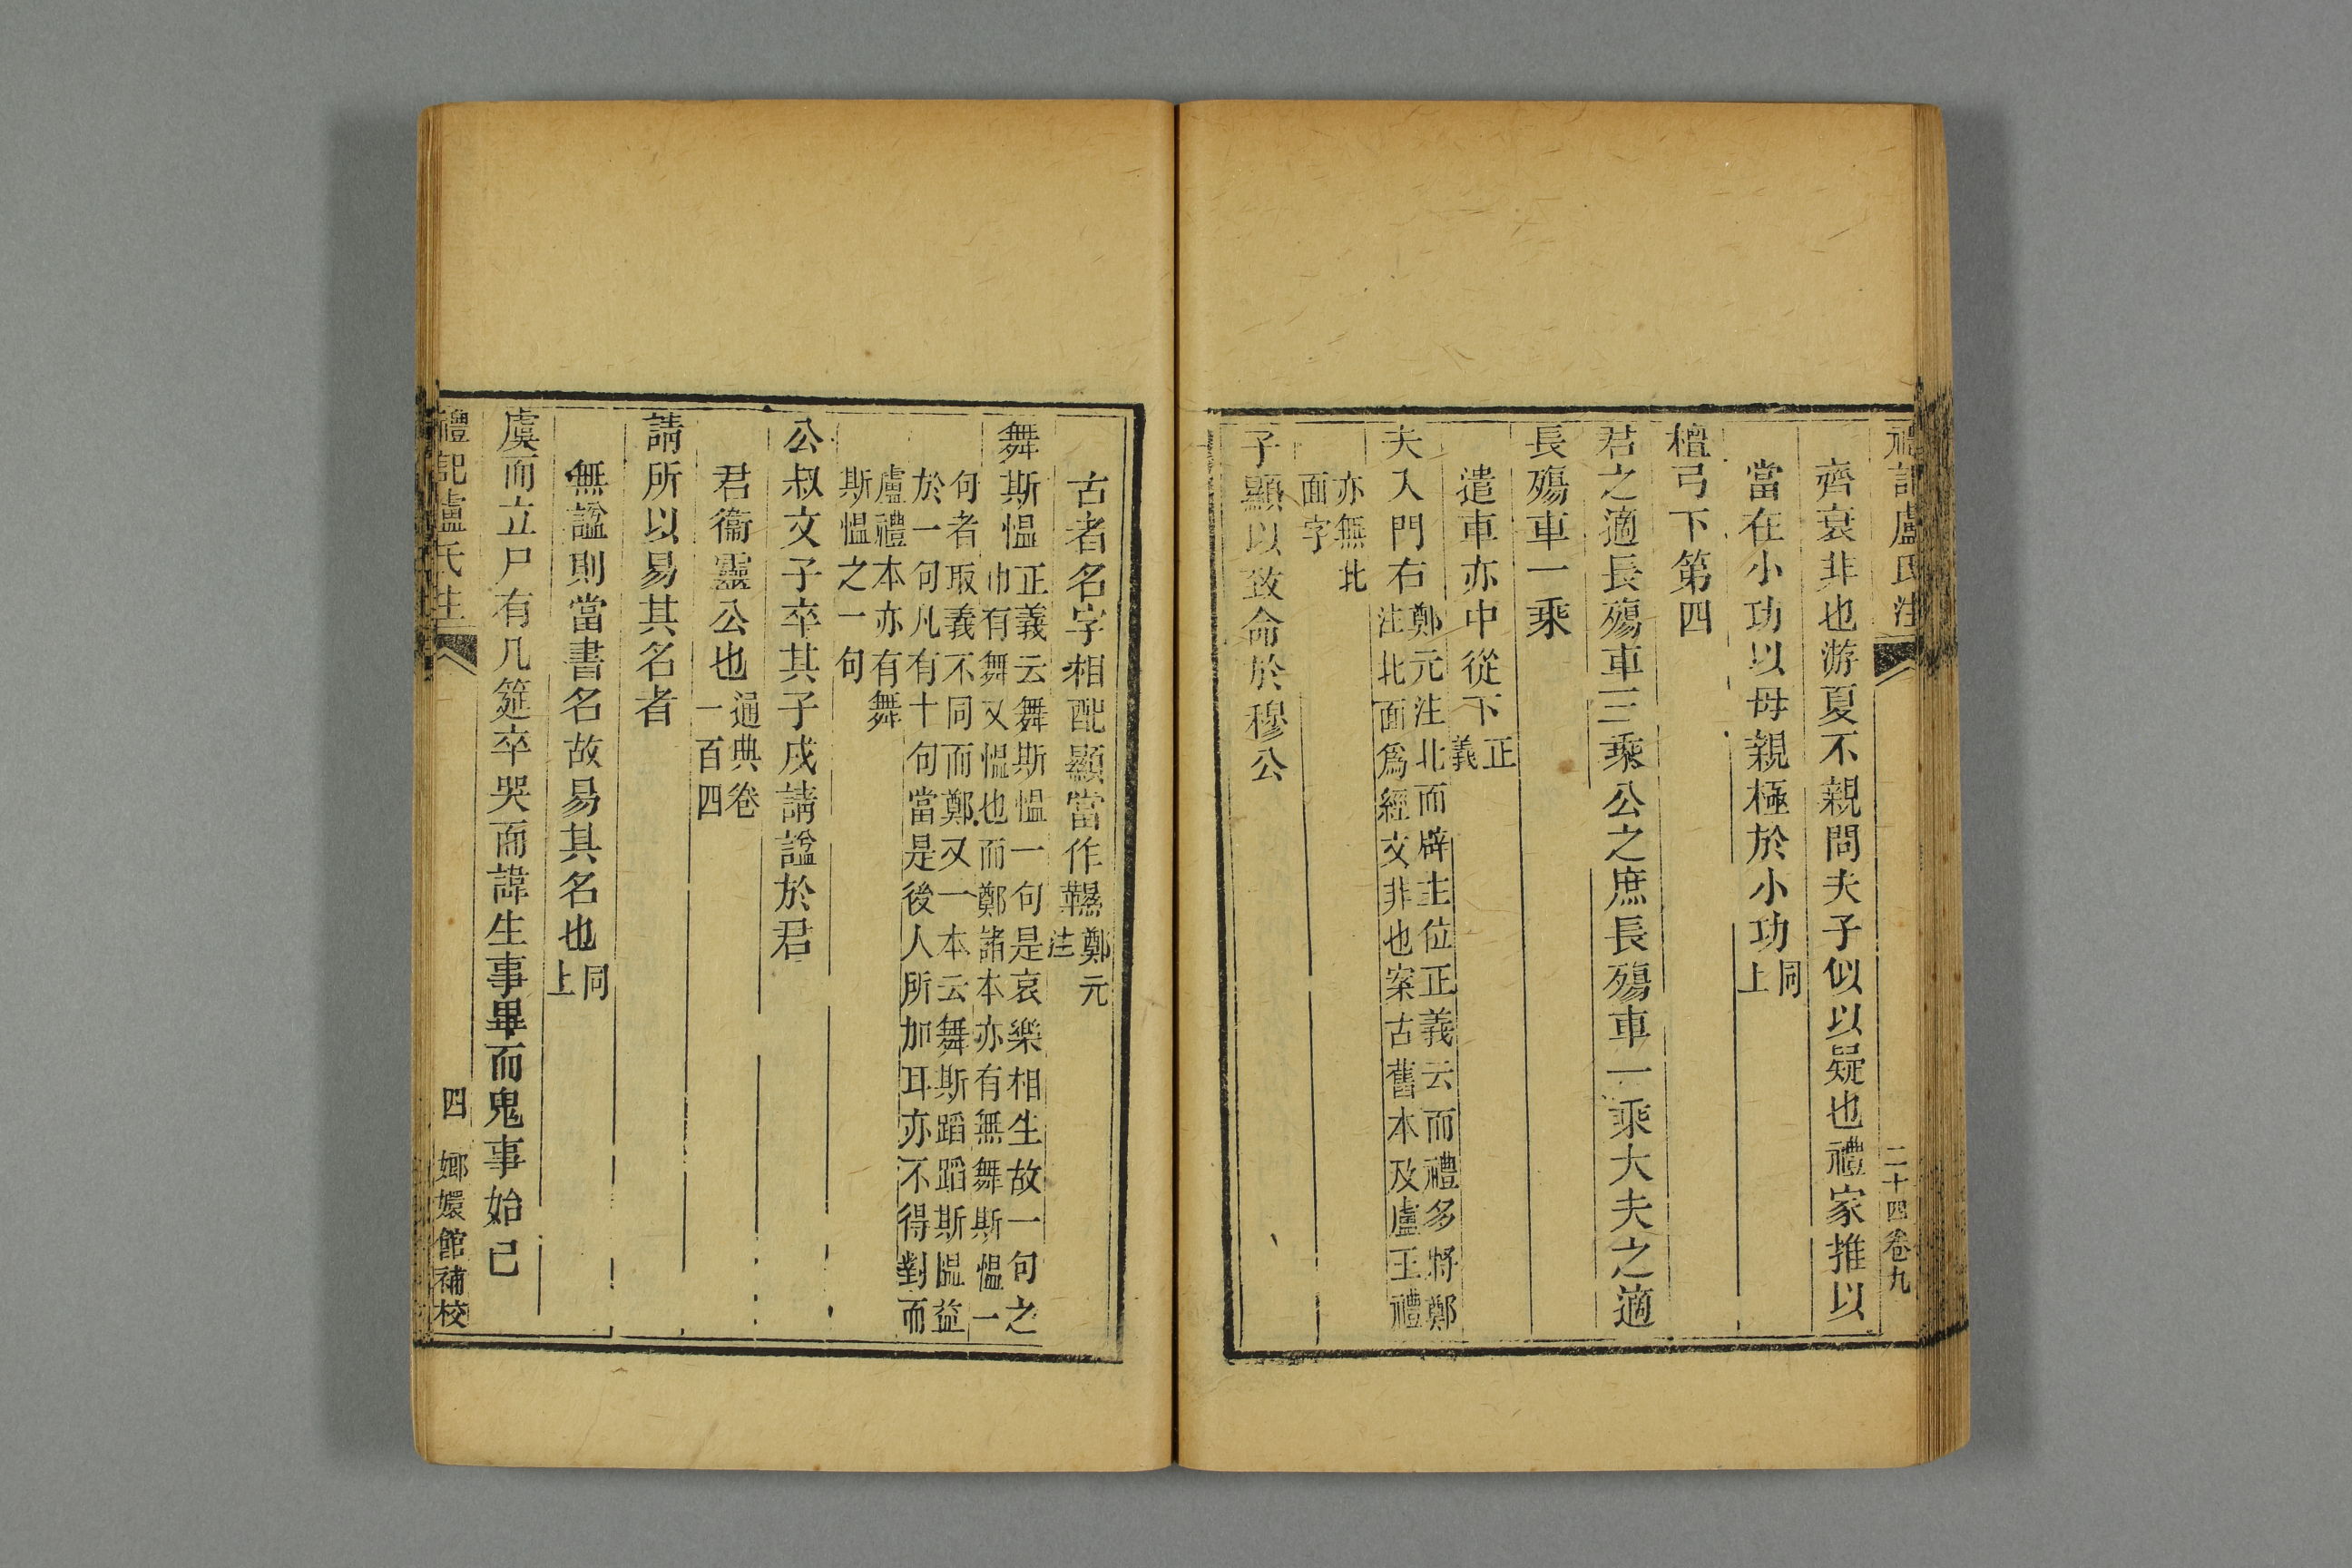 禮記盧氏注 二十四 卷九
齊衰非也游夏不親問夫子似以疑也禮家推以
當在小功以母親極於小功同上
檀弓下第四
君之適長殤車三乘公之庶長殤車一乘大夫之適
長殤車一乘
遣車亦中從下正義
夫入門右鄭元注北面辟主位正義云而禮多將鄭
注北面為經文非也案古舊本及盧王禮
亦無北
面字
子顯以致命於穆公
古者名字相配顯當作韅鄭元注
舞斯慍正義云舞斯慍一句是哀樂相生故一句之
巾有舞又慍也而鄭諸本亦有無舞斯慍一
句者取義不同而鄭又一本云舞斯蹈蹈斯慍益
於一句凡有十句當是後人所加耳亦不得對而
盧禮本亦有舞
斯慍之一句
公叔文子卒其子戍請諡於君
君衞靈公也通典卷一百四
請所以易其名者
無諡則當書名故易其名也同上
虞而立尸有几筵卒哭而諱生事畢而鬼事始已
禮記盧氏注 四 嫏嬛館補校